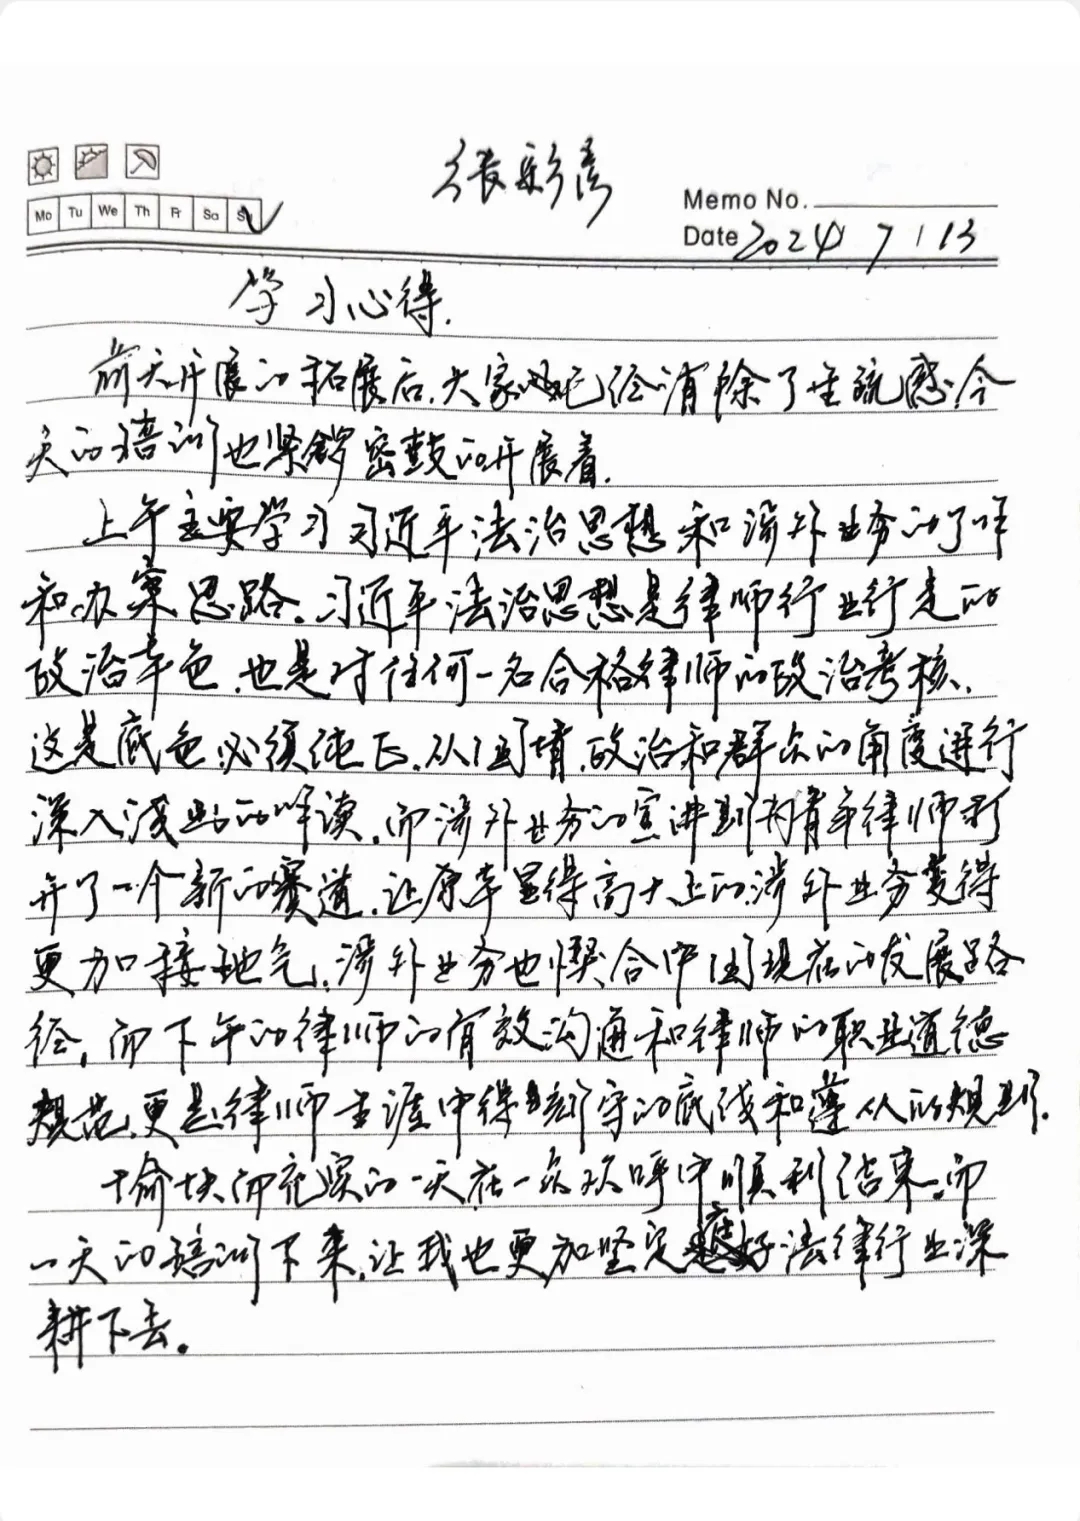 张彩秀
Memo No.
Mo Tu We Th Fr Sa Su
Date 2024 7 / 13
学习心得.
前天开展的拓展后,大家已经消除了生疏感,今
天的培训也紧锣密鼓的开展着.
上午主要学习习近平法治思想和涉外业务的了解
和办案思路。习近平法治思想是律师行业行走的
政治本色,也是对任何一名合格律师的政治考核,
这是底色,必须纯正,从国情,政治和群众的角度进行
深入浅出的解读,而涉外业务的宣讲则为青年律师
开了一个新的赛道,让原本显得高大上的涉外业务变得
更加接地气,涉外业务也契合中国现在的发展路
径,而下午的律师的有效沟通和律师的职业道德
规范,更是律师生涯中得守的底线和遵从的规则.
愉快而充实的一天在一众欢呼中顺利结束,而
一天的培训下来,让我也更加坚定好法律行业深
耕下去。